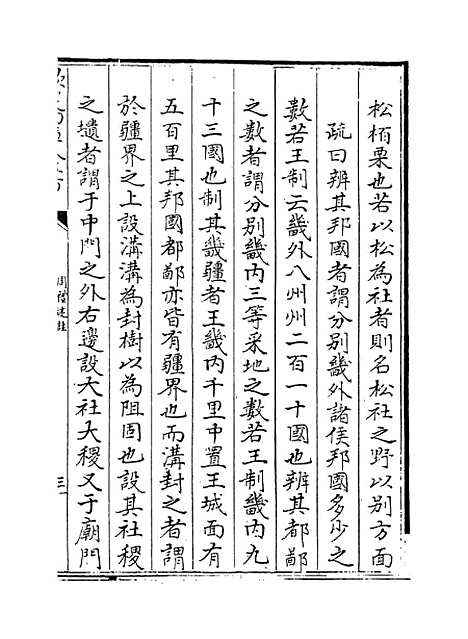 松栢栗也若以松為社者則名松社之野以别方面
疏曰辨其邦國者謂分别畿外諸侯邦國多少之
數若王制云畿外八州州二百一十國也辨其都鄙
之數者謂分别畿内三等采地之數若王制畿内九
十三國也制其畿疆者王畿内千里中置王城面有
五百里其邦國都鄙亦皆有疆界也而溝封之者謂
於疆界之上設溝溝為封樹以為阻固也設其社稷
之壝者謂于中門之外右邊設大社大稷又于廟門
欽定四庫全書
周禮述註
三